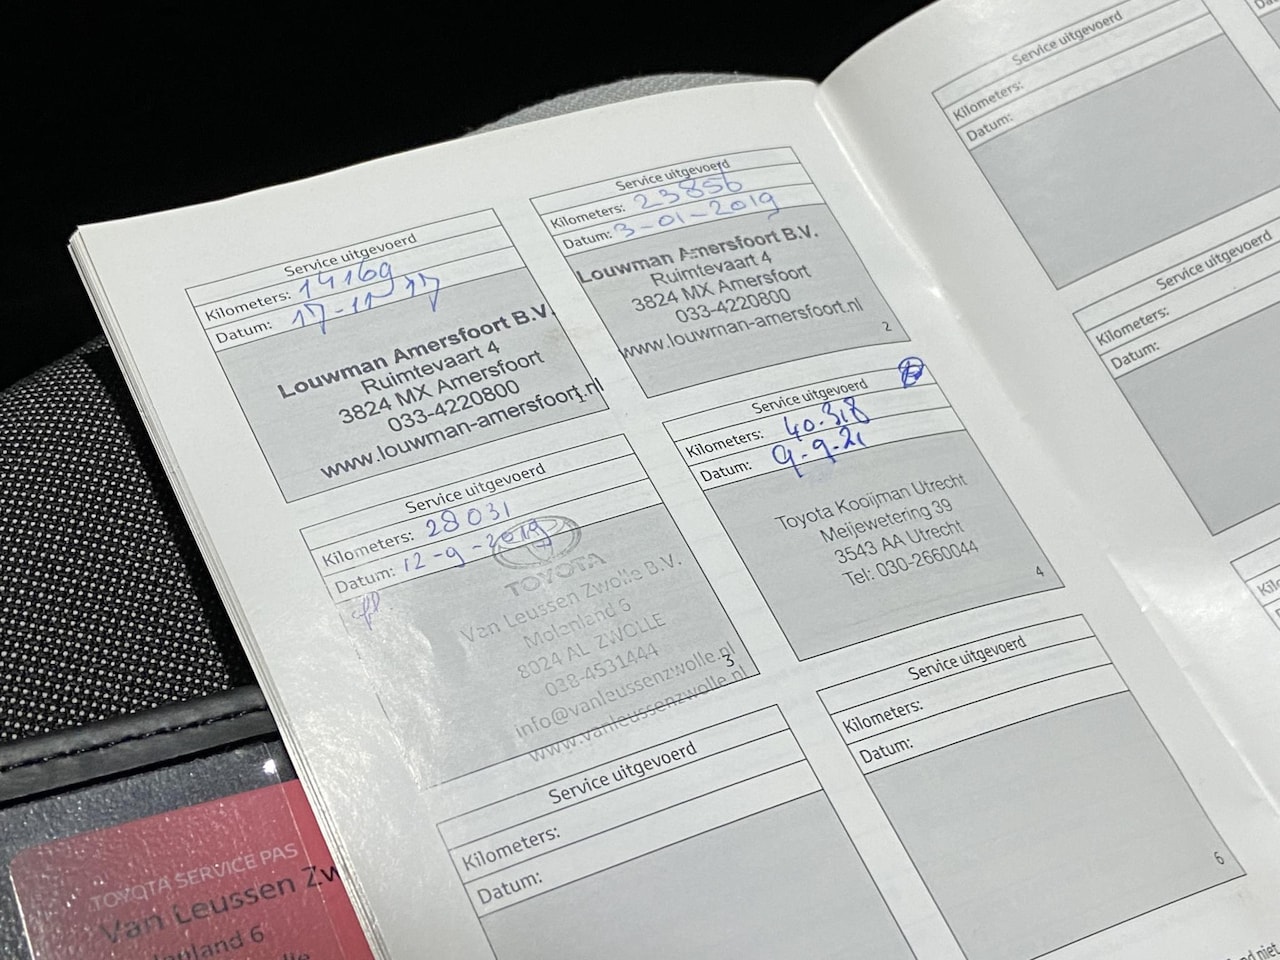 Service uitgevoerd
Kilometers: 14169
Datum: 17-11-17
Louwman Amersfoort B.V.
Ruimtevaart 4
3824 MX Amersfoort
033-4220800
www.louwman-amersfoort.nl
1
Service uitgevoerd
Kilometers: 23856
Datum: 3-01-2019
Louwman Amersfoort B.V.
Ruimtevaart 4
3824 MX Amersfoort
033-4220800
www.louwman-amersfoort.nl
2
Service uitgevoerd
Kilometers: 28031
Datum: 12-9-2019
TOYOTA
Van Leussen Zwolle B.V.
Molenland 6
8024 AL ZWOLLE
038-4531444
info@vanleussenzwolle.nl
www.vanleussenzwolle.nl
3
Service uitgevoerd
Kilometers: 40.318
Datum: 9-9-21
Toyota Kooijman Utrecht
Meijewetering 39
3543 AA Utrecht
Tel: 030-2660044
4
Service uitgevoerd
Kilometers:
Datum:
Service uitgevoerd
Kilometers:
Datum:
6
Service uitgevoerd
Kilometers:
Datum:
Service uitgevoerd
Kilometers:
Datum:
TOYOTA SERVICE PAS
Van Leussen Zw